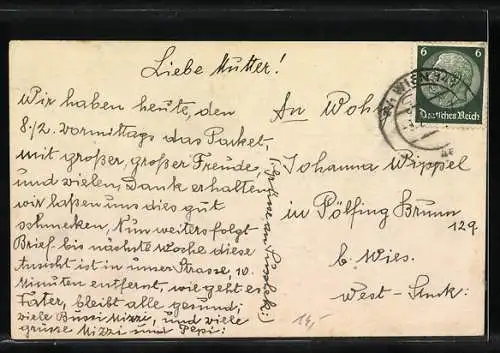 Liebe Mutter!
Wir haben heute, den
8./2. vormittags das Packet,
mit großer, großer Freude,
und vielen, Dank erhalten,
wir laßen uns dies gut
schmecken, Nun weiters folgt
Brief bis nächste Woche diese
Ansicht ist in unser Strasse, 10.
Minuten entfernt, wie geht es
Vater, bleibt alle gesund;
viele Bussi Mizzi, und viele
grüsse Mizzi und Pepi:
An Woh
Johanna Wippel
in Pölfing Brunn
129
b. Wies.
West-Smk:
14,-
6 6
Deutsches Reich
WIEN